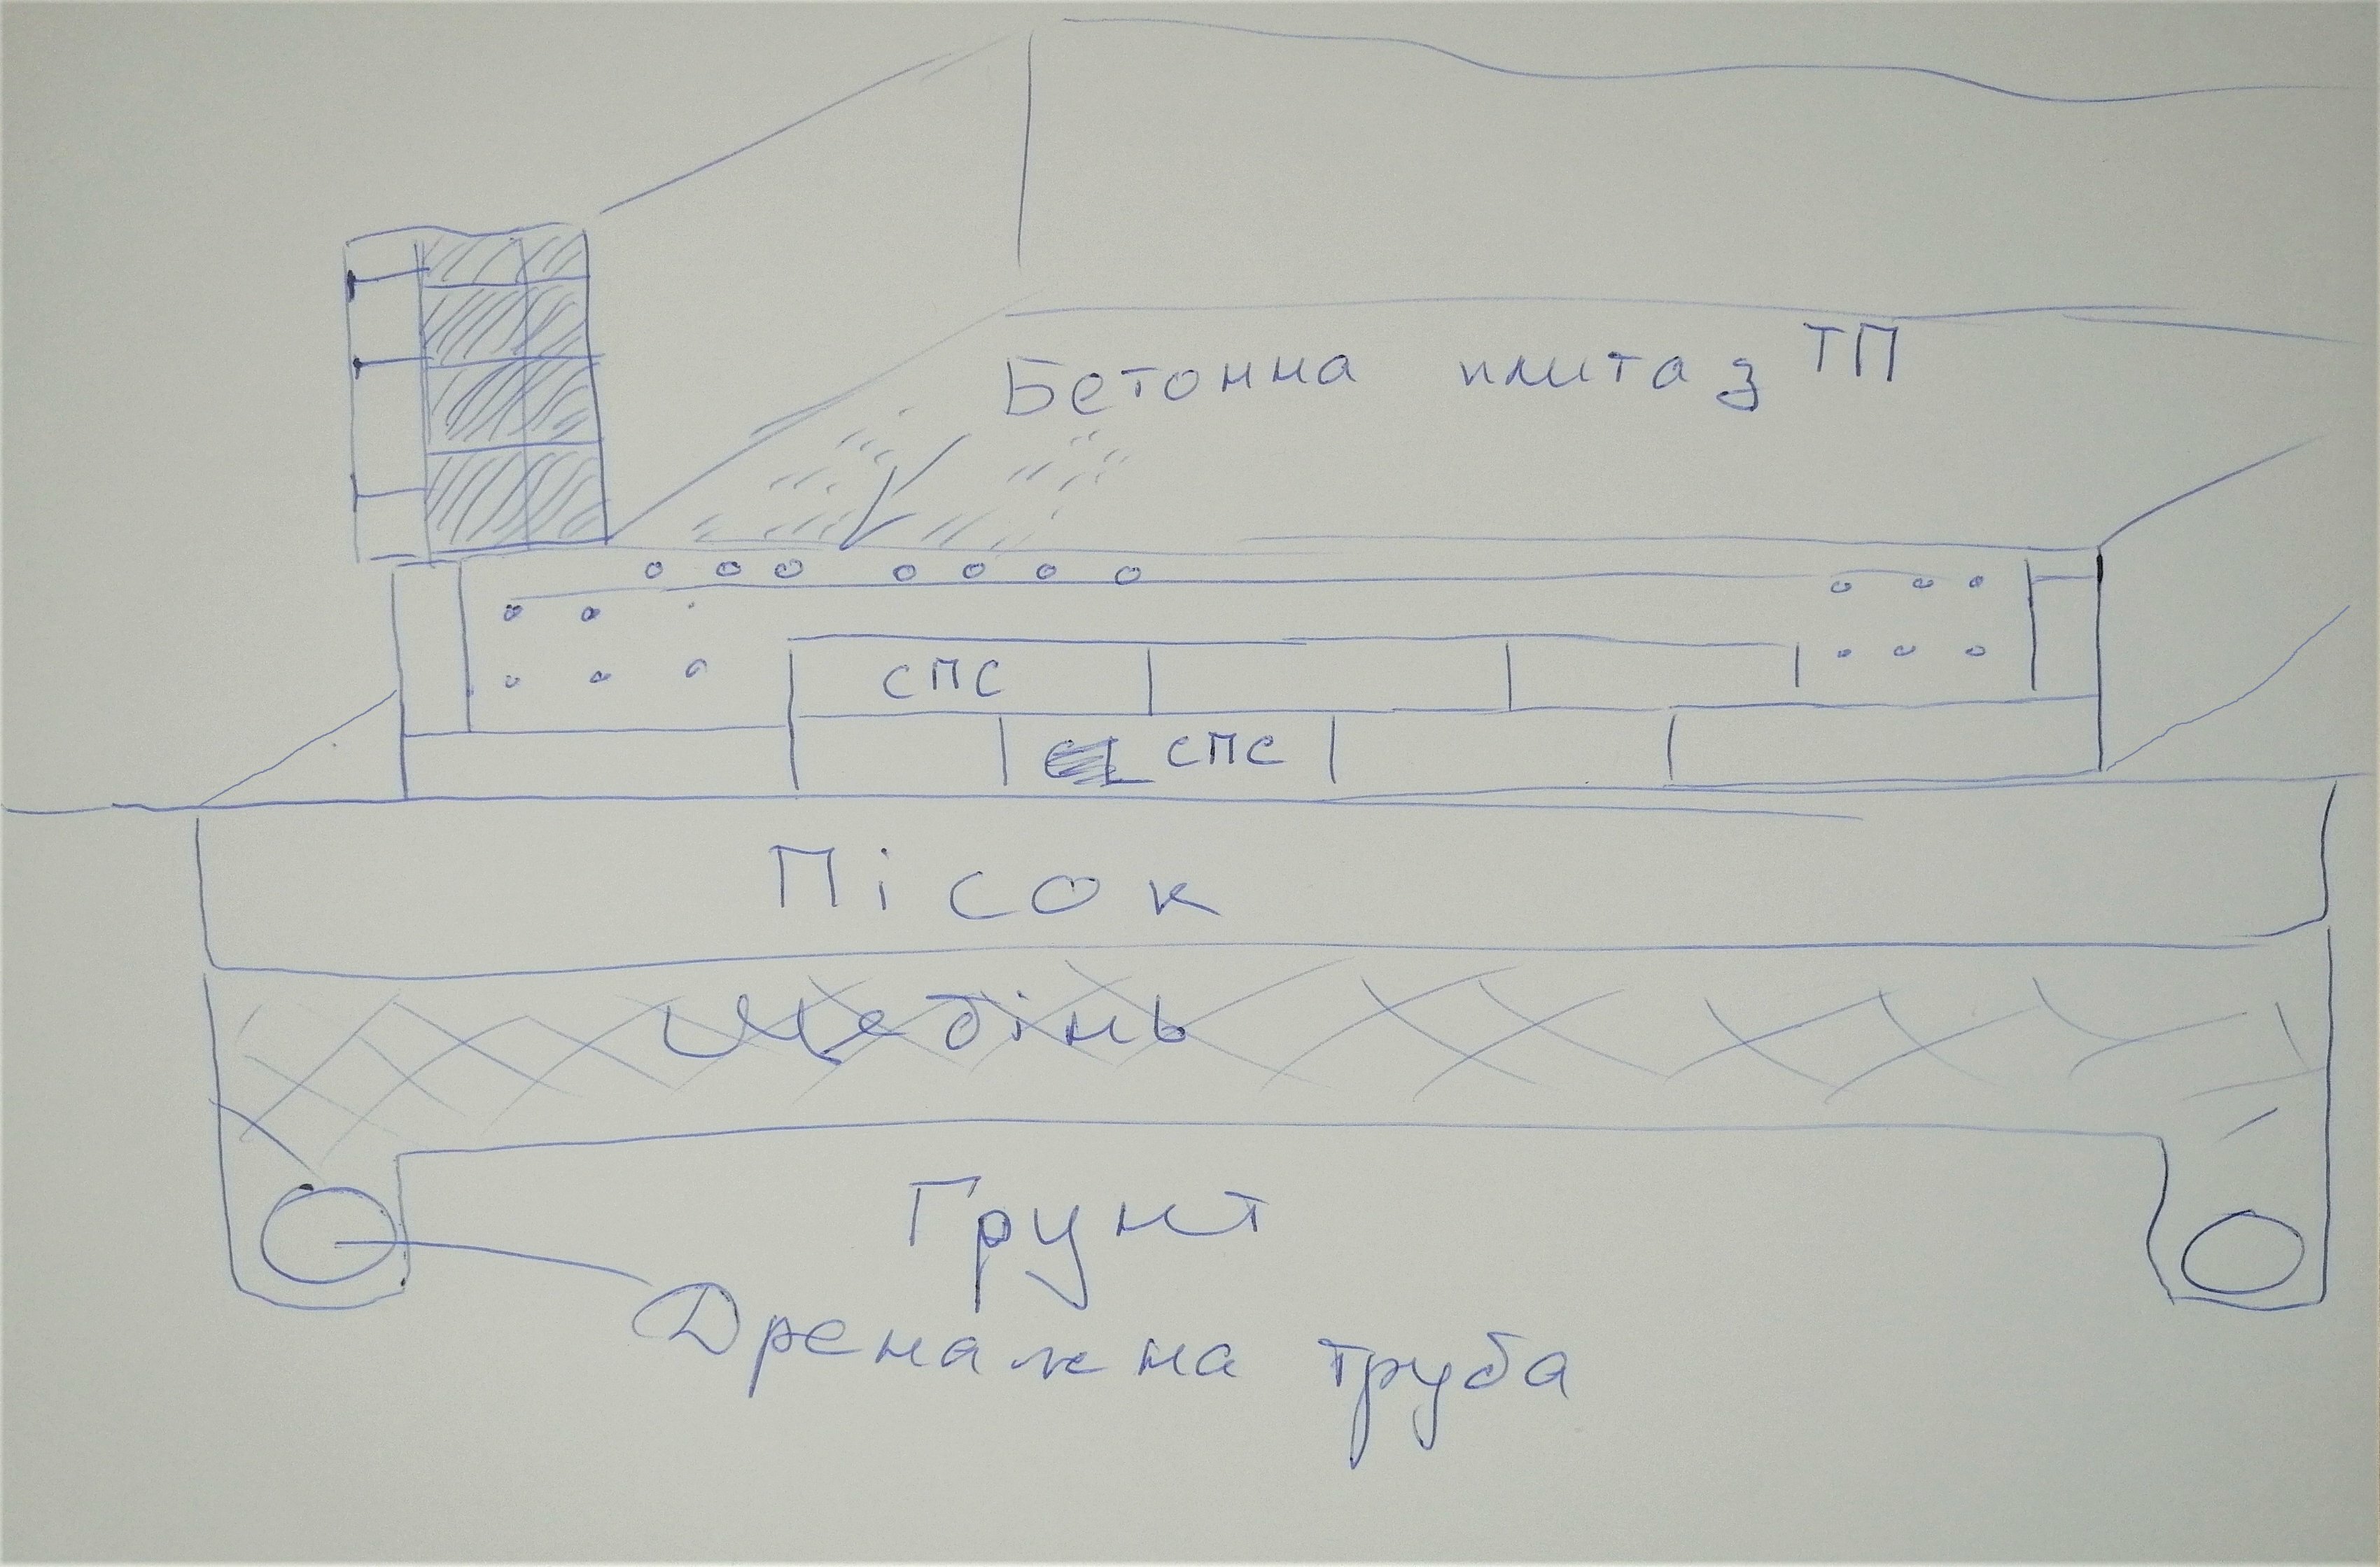 Бетонна плита з ТП
СПС
СПС
Пісок
Щебінь
Грунт
Дренажна труба